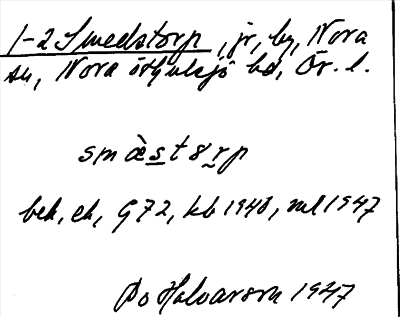 1-2 Smedstorp, jr, by, Nora
sn, Nora o Hjulsjö bd, Ör. l.
smæ̀st8rp
bek, ek, G72, kb 1940, ml 1947
Bo Halvarson 1947